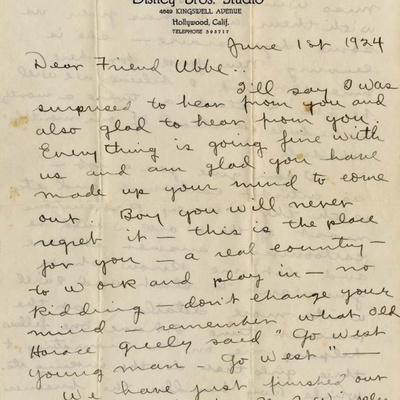 Disney Bros. Studio
4649 KINGSWELL AVENUE
Hollywood, Calif.
TELEPHONE 595717
June 1st 1924
Dear Friend Ubbe..
I'll say I was
surprised to hear from you and
also glad to hear from you.
Everything is going fine with
us and am glad you have
made up your mind to come
out. Boy you will never
regret it — this is the place
for you — a real country —
to work and play in — no
kidding — don't change your
mind — remember what old
Horace greely said "Go west
young man — Go west" —
We have just finished out